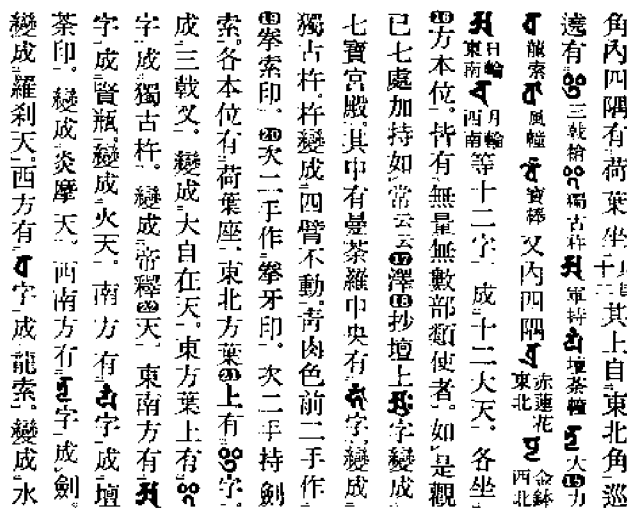 角內四隅有荷葉坐十二其上自東北角巡
遶有三戟槍獨古杵軍持壇荼幢大⑮力
龍索風幢寶棒又內四隅赤蓮花東北金鉢西北
日輪東南月輪西南等十二字。成十二大天。各坐
⑯方本位。皆有無量無數部類使者。如是觀
已七處加持如常云云⑰澤⑱抄壇上字變成
七寶宮殿。其中有曼荼羅中央有字變成
獨古杵。杵變成四臂不動。靑肉色前二手作
⑲拳索印。⑳次二手作拳牙印。次二手持劍
索。各本位有荷葉座。東北方葉㉑上有字。
成三戟叉。變成大自在天。東方葉上有
字成獨古杵。變成帝釋㉒天。東南方有
字成賢瓶。變成火天。南方有字成壇
荼印。變成炎摩天。西南方有字成劍。
變成羅刹天。西方有字成龍索。變成水